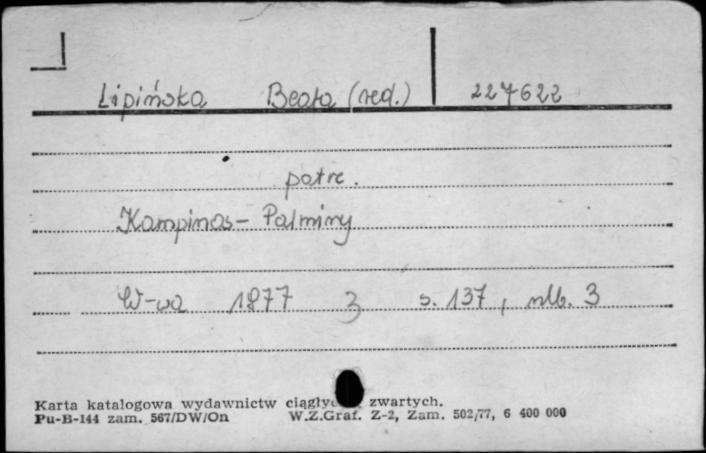 Lipińska Beata (red.) 227622
patrz.
Kampinos - Palmiry
W-wa 1977 3 s. 137, nlb. 3
Karta katalogowa wydawnictw zwartych.
Pu-B-144 zam. 567/DW/On W.Z.Graf. Z-2, Zam. 502/77, 6 400 000